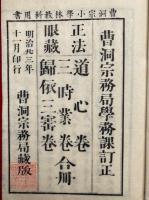 曹洞宗小學林教科用書
曹洞宗務局學務課訂正
正法眼藏
道心卷
三時業卷
歸依三寶卷
合冊
明治廿三年
十一月印行
曹洞宗務局藏版